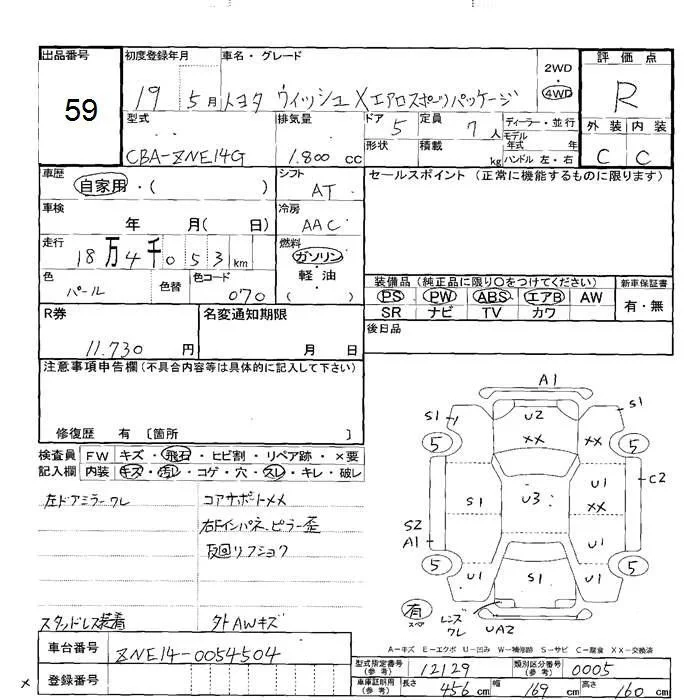 出品番号 初度登録年月 車名・グレード 2WD 評価点
59 19 5月 トヨタ ウィッシュ X エアロスポーツパッケージ 4WD R
型式 排気量 ドア 5 定員 7人 ディーラー・並行 外装 内装
CBA-ZNE14G 1.800 cc 形状 積載 kg モデル年式 年 C C
ハンドル 左・右
車歴 自家用・( ) シフト AT セールスポイント (正常に機能するものに限ります)
車検 年 月( 日) 冷房 AAC
走行 18万4千053km 燃料 ガソリン・軽油 ( )
色 パール 色替 色コード 070
装備品 (純正品に限り○をつけてください) 新車保証書
PS PW ABS エアB AW 有・無
SR ナビ TV カワ
R券 11.730 円 名変通知期限 月 日 後日品
注意事項申告欄 (不具合内容等は具体的に記入して下さい)
修復歴 有 〔箇所 〕
検査員 FW キズ・飛石・ヒビ割・リペア跡・×要
記入欄 内装 キズ・汚レ・コゲ・穴・スレ・キレ・破レ
左ドアミラーワレ コアサポートメメ
右Fインパネ、ピラー歪
スタッドレス装着 外AWキズ
A1
S1 U2 S1
XX XX
5 5
U1 C2
S1 U3 XX
S2
A1 U1
5 5
U1 S1 U1
有 レンズ
スペア ワレ UA2
A-キズ E-エクボ U-凹み W-補修跡 S-サビ C-腐食 XX-交換済
車台番号 ZNE14-0054504
型式指定番号 (参考) 12129 類別区分番号 (参考) 0005
× 登録番号 車庫証明用 (参考) 長さ 456cm 幅 169cm 高さ 160cm